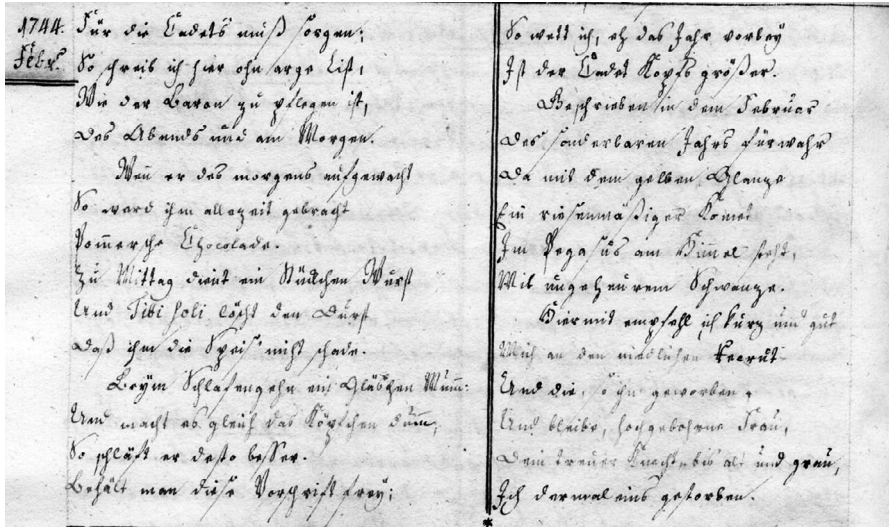 1744.
Febr.
Für die Cadets muß sorgen;
So schreib ich hier ohn arge List,
Wie der Baron zu pflegen ist,
Des Abends und am Morgen.
Wen̄ er des morgens aufgewacht
So werd ihm allezeit gebracht
Pom̄ersche Chocolade.
Zu Mittag dient ein Stückchen Wurst
Und Tibi soli löscht den Durst
Daß ihm die Speise nicht schade.
Beym Schlafengehn ein Gläschen Mum̄:
Und macht es gleich das Köpfchen dum̄,
So schläft er desto besser.
Behält man diese Vorschrift frey;
So wett ich, eh das Jahr vorbey
Ist der Cadet Kopfs größer.
Beschrieben in dem Februar
Des sonderbaren Jahrs fürwahr
Da mit dem gelben Glanze
Ein riesenmäßiger Komet
Im Pegasus am Himmel steht,
Mit ungeheurem Schwanze.
Hiermit empfehl ich kurz und gut
Mich an den niedlichen Recrut
Und die, so ihn geworben,
Und bleibe, hochgebohrne Frau,
Dein treuer Knecht bis alt und grau,
Ich dermaleins gestorben.